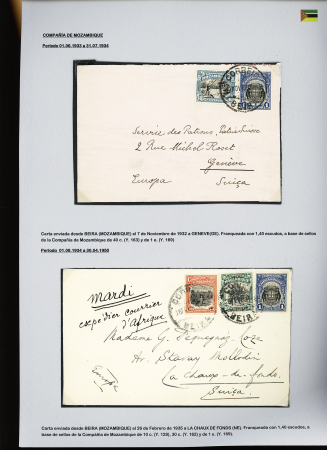 COMPAÑÍA DE MOZAMBIQUE
Periodo 01.08.1933 a 31.07.1934
CORREIO
BEIRA
Service des
2 Rue Michel Roset
Genève
Europa Suiça
Carta enviada desde BEIRA (MOZAMBIQUE) el 7 de Noviembre de 1932 a GENEVE(GE). Franqueada con 1,40 escudos, a base de sellos
de la Compañía de Mozambique de 40 c. (Y. 163) y de 1 e. (Y. 169)
Periodo 01.08.1934 a 30.04.1950
mardi
expédier courrier
d'Afrique
BEIRA
Madame G.
La Chaux-de-fonds
Europe
Suiça
Carta enviada desde BEIRA (MOZAMBIQUE) el 26 de Febrero de 1935 a LA CHAUX DE FONDS (NE). Franqueada con 1,40 escudos, a
base de sellos de la Compañía de Mozambique de 10 c. (Y. 133), 30 c. (Y. 162) y de 1 e. (Y. 169).